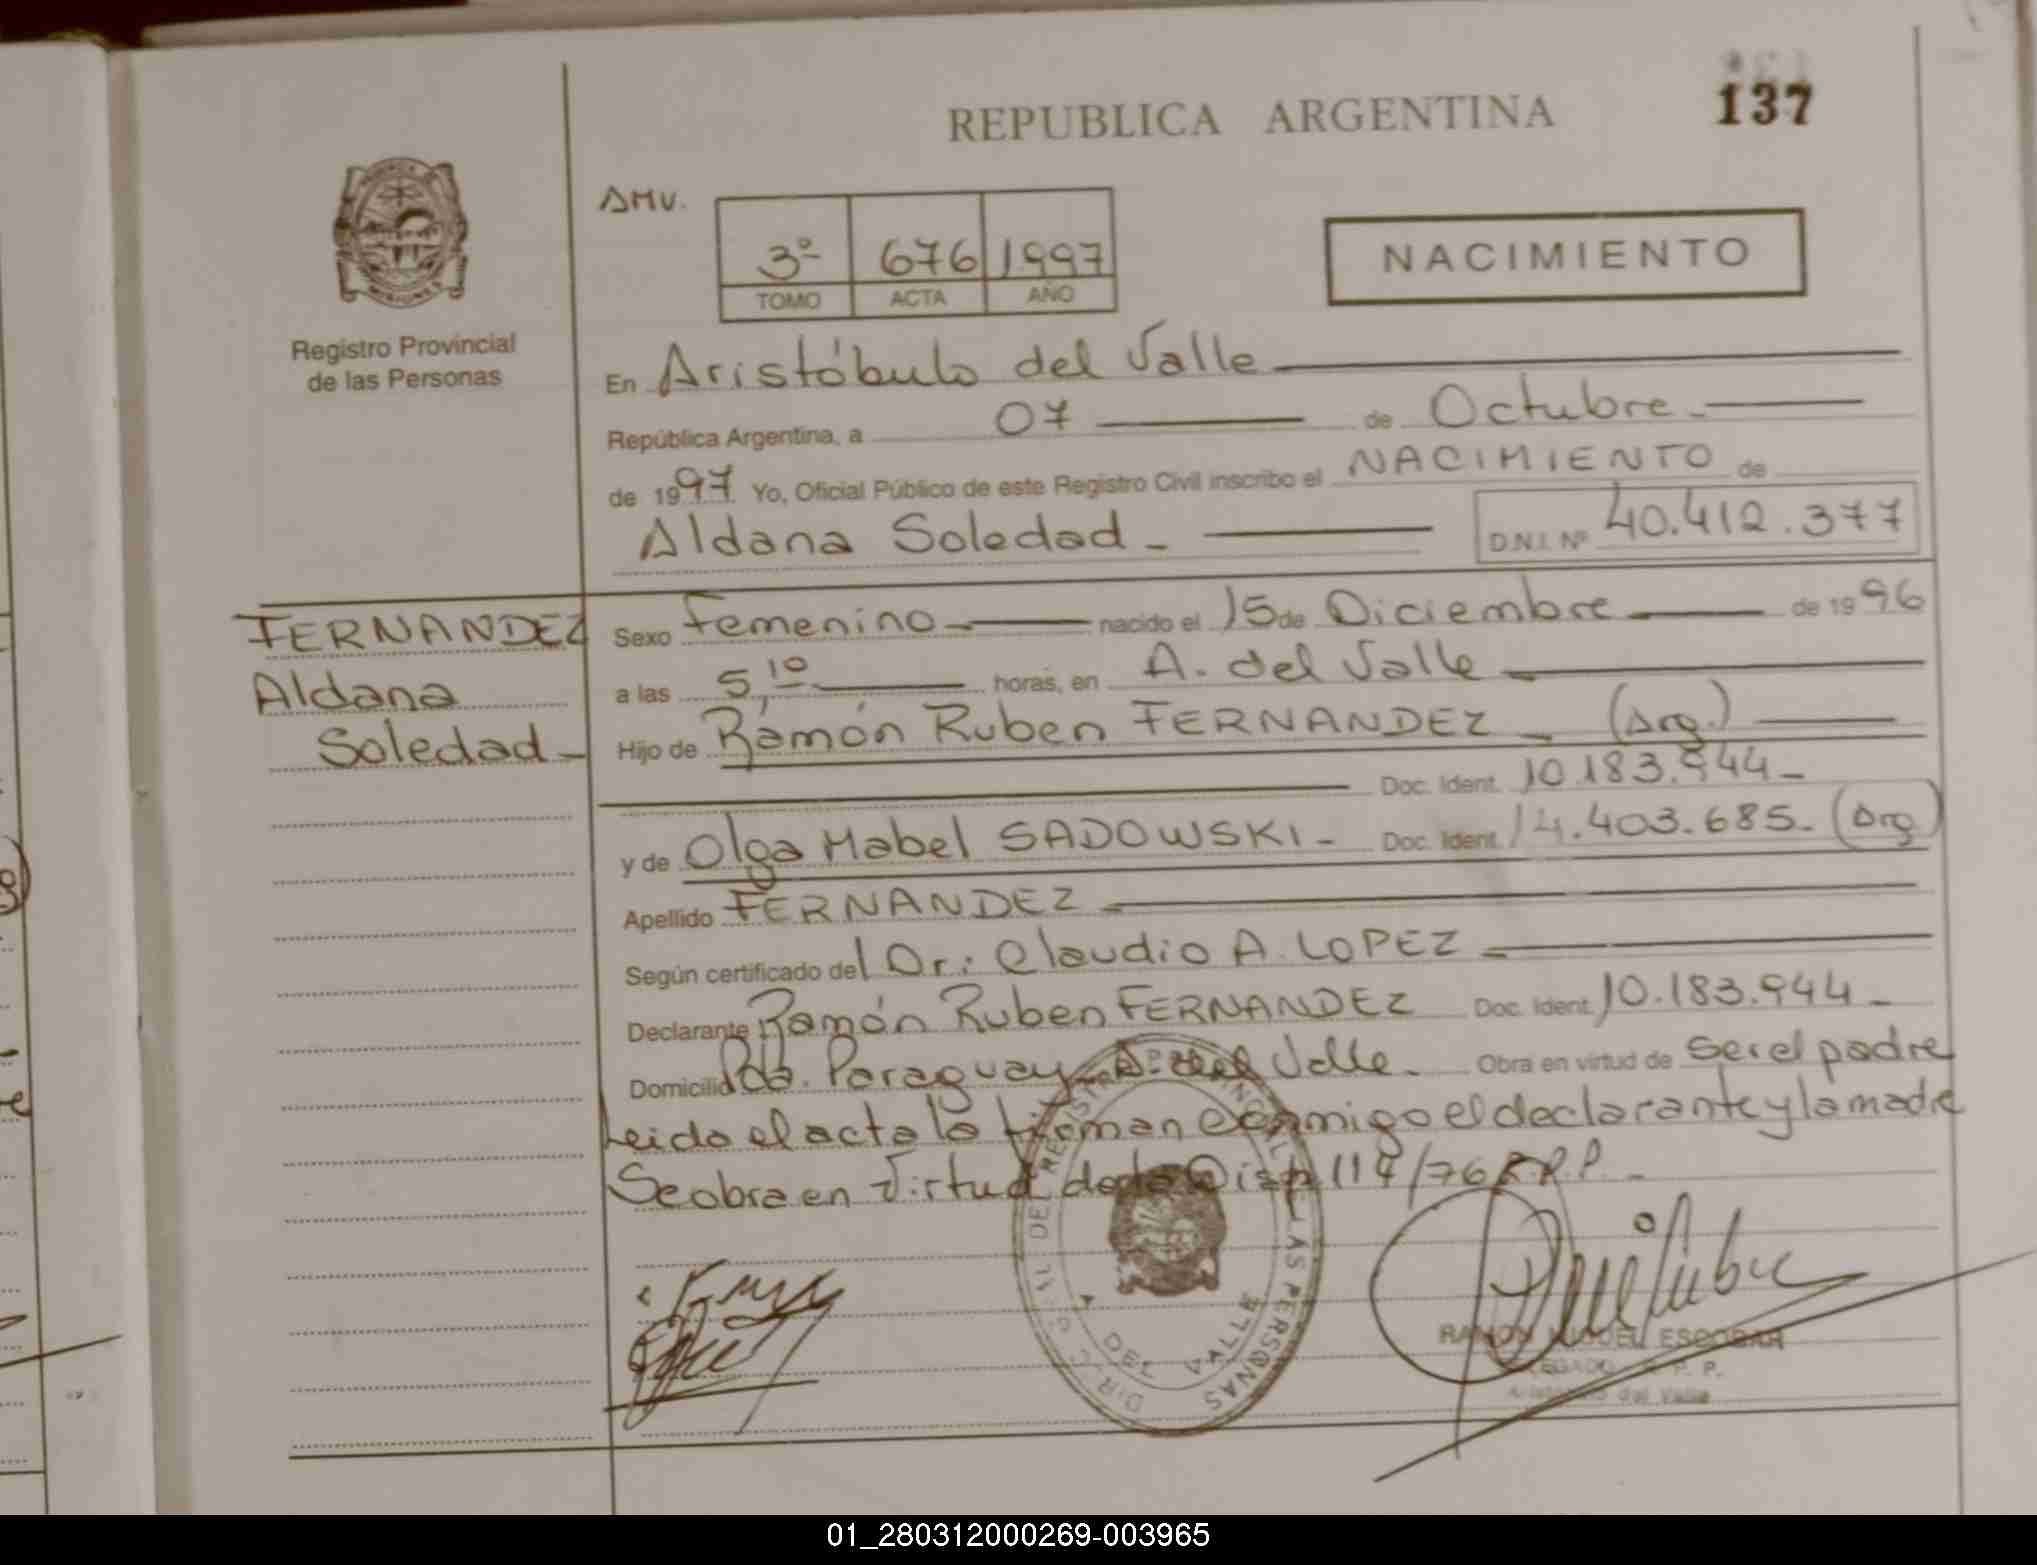 REPUBLICA ARGENTINA
137
PROVINCIA DE MISIONES
Registro Provincial
de las Personas
AMV.
3º 676 1997
TOMO ACTA AÑO
NACIMIENTO
En Aristóbulo del Valle
República Argentina, a 07 de Octubre
de 1997 Yo, Oficial Público de este Registro Civil inscribo el NACIMIENTO de
Aldana Soledad D.N.I. Nº 40.412.377
FERNANDEZ
Aldana
Soledad
Sexo Femenino nacido el 15 de Diciembre de 1996
a las 5,10 horas, en A. del Valle
Hijo de Ramón Ruben FERNANDEZ (Arg.)
Doc. Ident. 10.183.944
y de Olga Mabel SADOWSKI Doc. Ident. 14.403.685 (Arg)
Apellido FERNANDEZ
Según certificado del Dr: Claudio A. LOPEZ
Declarante Ramón Ruben FERNANDEZ Doc. Ident. 10.183.944
Domicilio Pdo. Paraguay Aº del Valle. Obra en virtud de ser el padre
Leido el acta la firman conmigo el declarante y la madre
Se obra en virtud de la Disp 114/76 R.P.P.
DIR. GRAL DE REGISTRO PROVINCIAL DE LAS PERSONAS
A. DEL VALLE
RAMON MIGUEL ESCOBAR
DELEGADO R. P. P.
Aristobulo del Valle
01_280312000269-003965